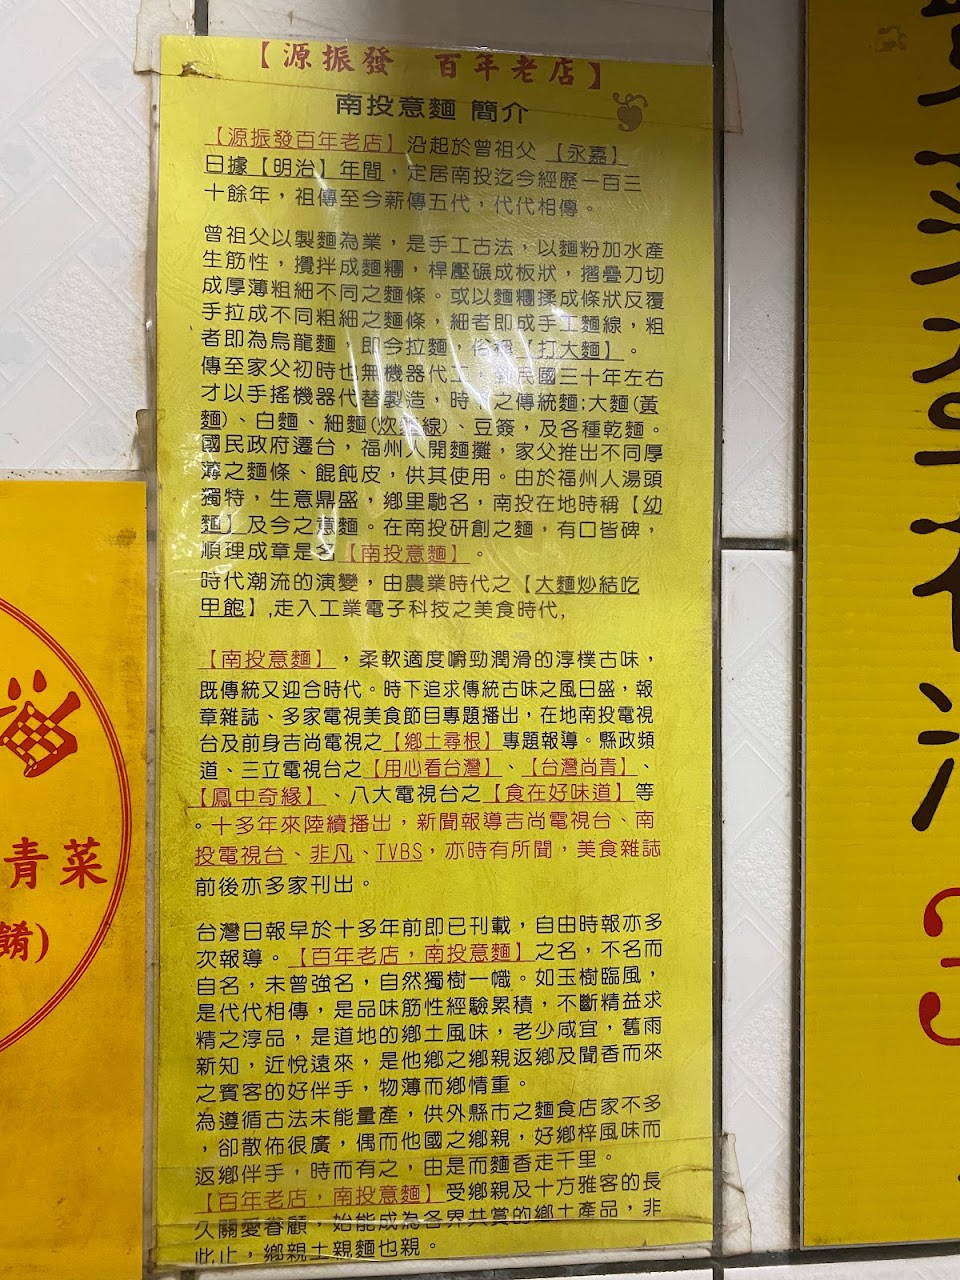 【源振發 百年老店】
南投意麵 簡介
【源振發百年老店】沿起於曾祖父【永嘉】
日據【明治】年間，定居南投迄今經歷一百三
十餘年，祖傳至今薪傳五代，代代相傳。
曾祖父以製麵為業，是手工古法，以麵粉加水產
生筋性，攪拌成麵糰，桿壓碾成板狀，摺疊刀切
成厚薄粗細不同之麵條。或以麵糰揉成條狀反覆
手拉成不同粗細之麵條，細者即成手工麵線，粗
者即為烏龍麵，即今拉麵，俗稱【打大麵】。
傳至家父初時也無機器代工，到民國三十年左右
才以手搖機器代替製造，時之傳統麵:大麵(黃
麵)、白麵、細麵(炊線)、豆簽，及各種乾麵。
國民政府遷台，福州人開麵攤，家父推出不同厚
薄之麵條、餛飩皮，供其使用。由於福州人湯頭
獨特，生意鼎盛，鄉里馳名，南投在地時稱【幼
麵】及今之意麵。在南投研創之麵，有口皆碑，
順理成章是名【南投意麵】。
時代潮流的演變，由農業時代之【大麵炒結吃
甲飽】,走入工業電子科技之美食時代,
【南投意麵】，柔軟適度嚼勁潤滑的淳樸古味，
既傳統又迎合時代。時下追求傳統古味之風日盛，報
章雜誌、多家電視美食節目專題播出，在地南投電視
台及前身吉尚電視之【鄉土尋根】專題報導。縣政頻
道、三立電視台之【用心看台灣】、【台灣尚青】、
【鳳中奇緣】、八大電視台之【食在好味道】等
。十多年來陸續播出，新聞報導吉尚電視台、南
投電視台、非凡、TVBS，亦時有所聞，美食雜誌
前後亦多家刊出。
台灣日報早於十多年前即已刊載，自由時報亦多
次報導。【百年老店，南投意麵】之名，不名而
自名，未曾強名，自然獨樹一幟。如玉樹臨風，
是代代相傳，是品味筋性經驗累積，不斷精益求
精之淳品，是道地的鄉土風味，老少咸宜，舊雨
新知，近悅遠來，是他鄉之鄉親返鄉及聞香而來
之賓客的好伴手，物薄而鄉情重。
為遵循古法未能量產，供外縣市之麵食店家不多
，卻散佈很廣，偶而他國之鄉親，好鄉梓風味而
返鄉伴手，時而有之，由是而麵香走千里。
【百年老店，南投意麵】受鄉親及十方雅客的長
久關愛眷顧，始能成為各界共賞的鄉土產品，非
此止，鄉親土親麵也親。
青菜
餚)